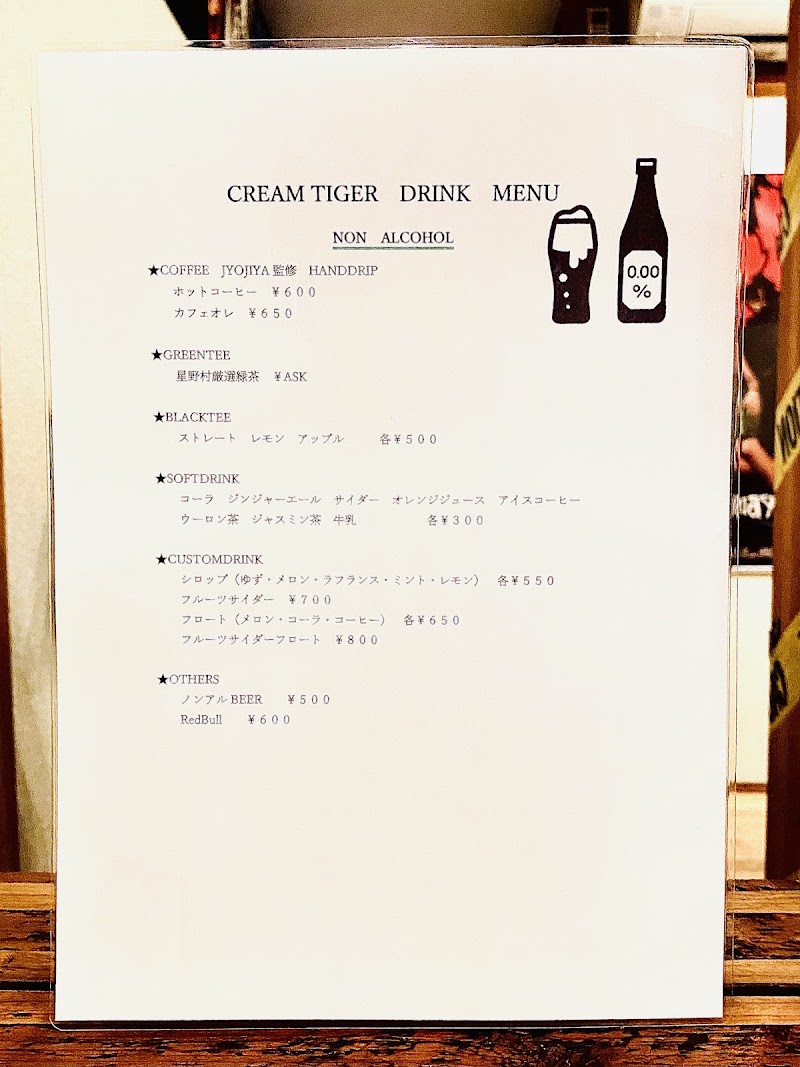 CREAM TIGER　DRINK　MENU
NON　ALCOHOL
0.00
%
★COFFEE　JYOJIYA監修　HANDDRIP
ホットコーヒー　￥６００
カフェオレ　￥６５０
★GREENTEE
星野村厳選緑茶　￥ASK
★BLACKTEE
ストレート　レモン　アップル　　　各￥５００
★SOFTDRINK
コーラ　ジンジャーエール　サイダー　オレンジジュース　アイスコーヒー
ウーロン茶　ジャスミン茶　牛乳　　　　　　各￥３００
★CUSTOMDRINK
シロップ（ゆず・メロン・ラフランス・ミント・レモン）　各￥５５０
フルーツサイダー　￥７００
フロート（メロン・コーラ・コーヒー）　各￥６５０
フルーツサイダーフロート　￥８００
★OTHERS
ノンアルBEER　　￥５００
RedBull　　￥６００